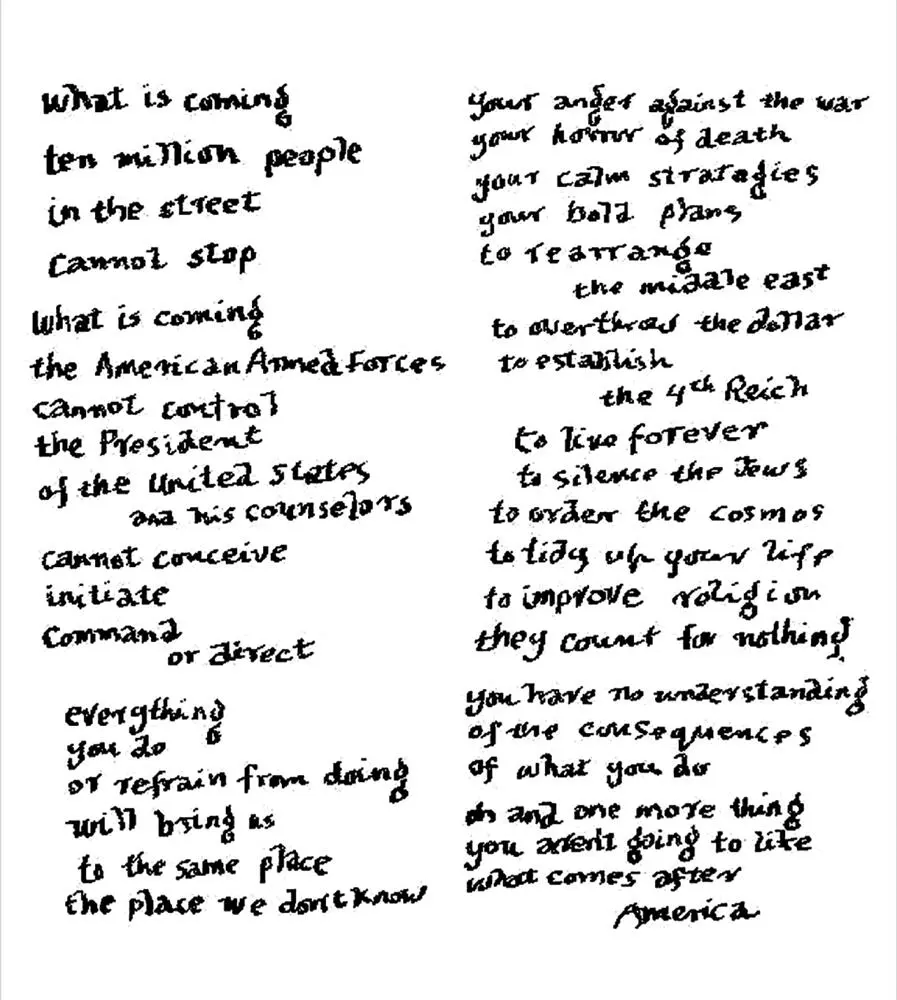 What is coming
ten million people
in the street
cannot stop
What is coming
the American Armed Forces
cannot control
the President
of the United States
and his counselors
cannot conceive
initiate
command
or direct
everything
you do
or refrain from doing
will bring us
to the same place
the place we don't know
your anger against the war
your horror of death
your calm strategies
your bold plans
to rearrange
the middle east
to overthrow the dollar
to establish
the 4th Reich
to live forever
to silence the Jews
to order the cosmos
to tidy up your life
to improve religion
they count for nothing
you have no understanding
of the consequences
of what you do
oh and one more thing
you aren't going to like
what comes after
America